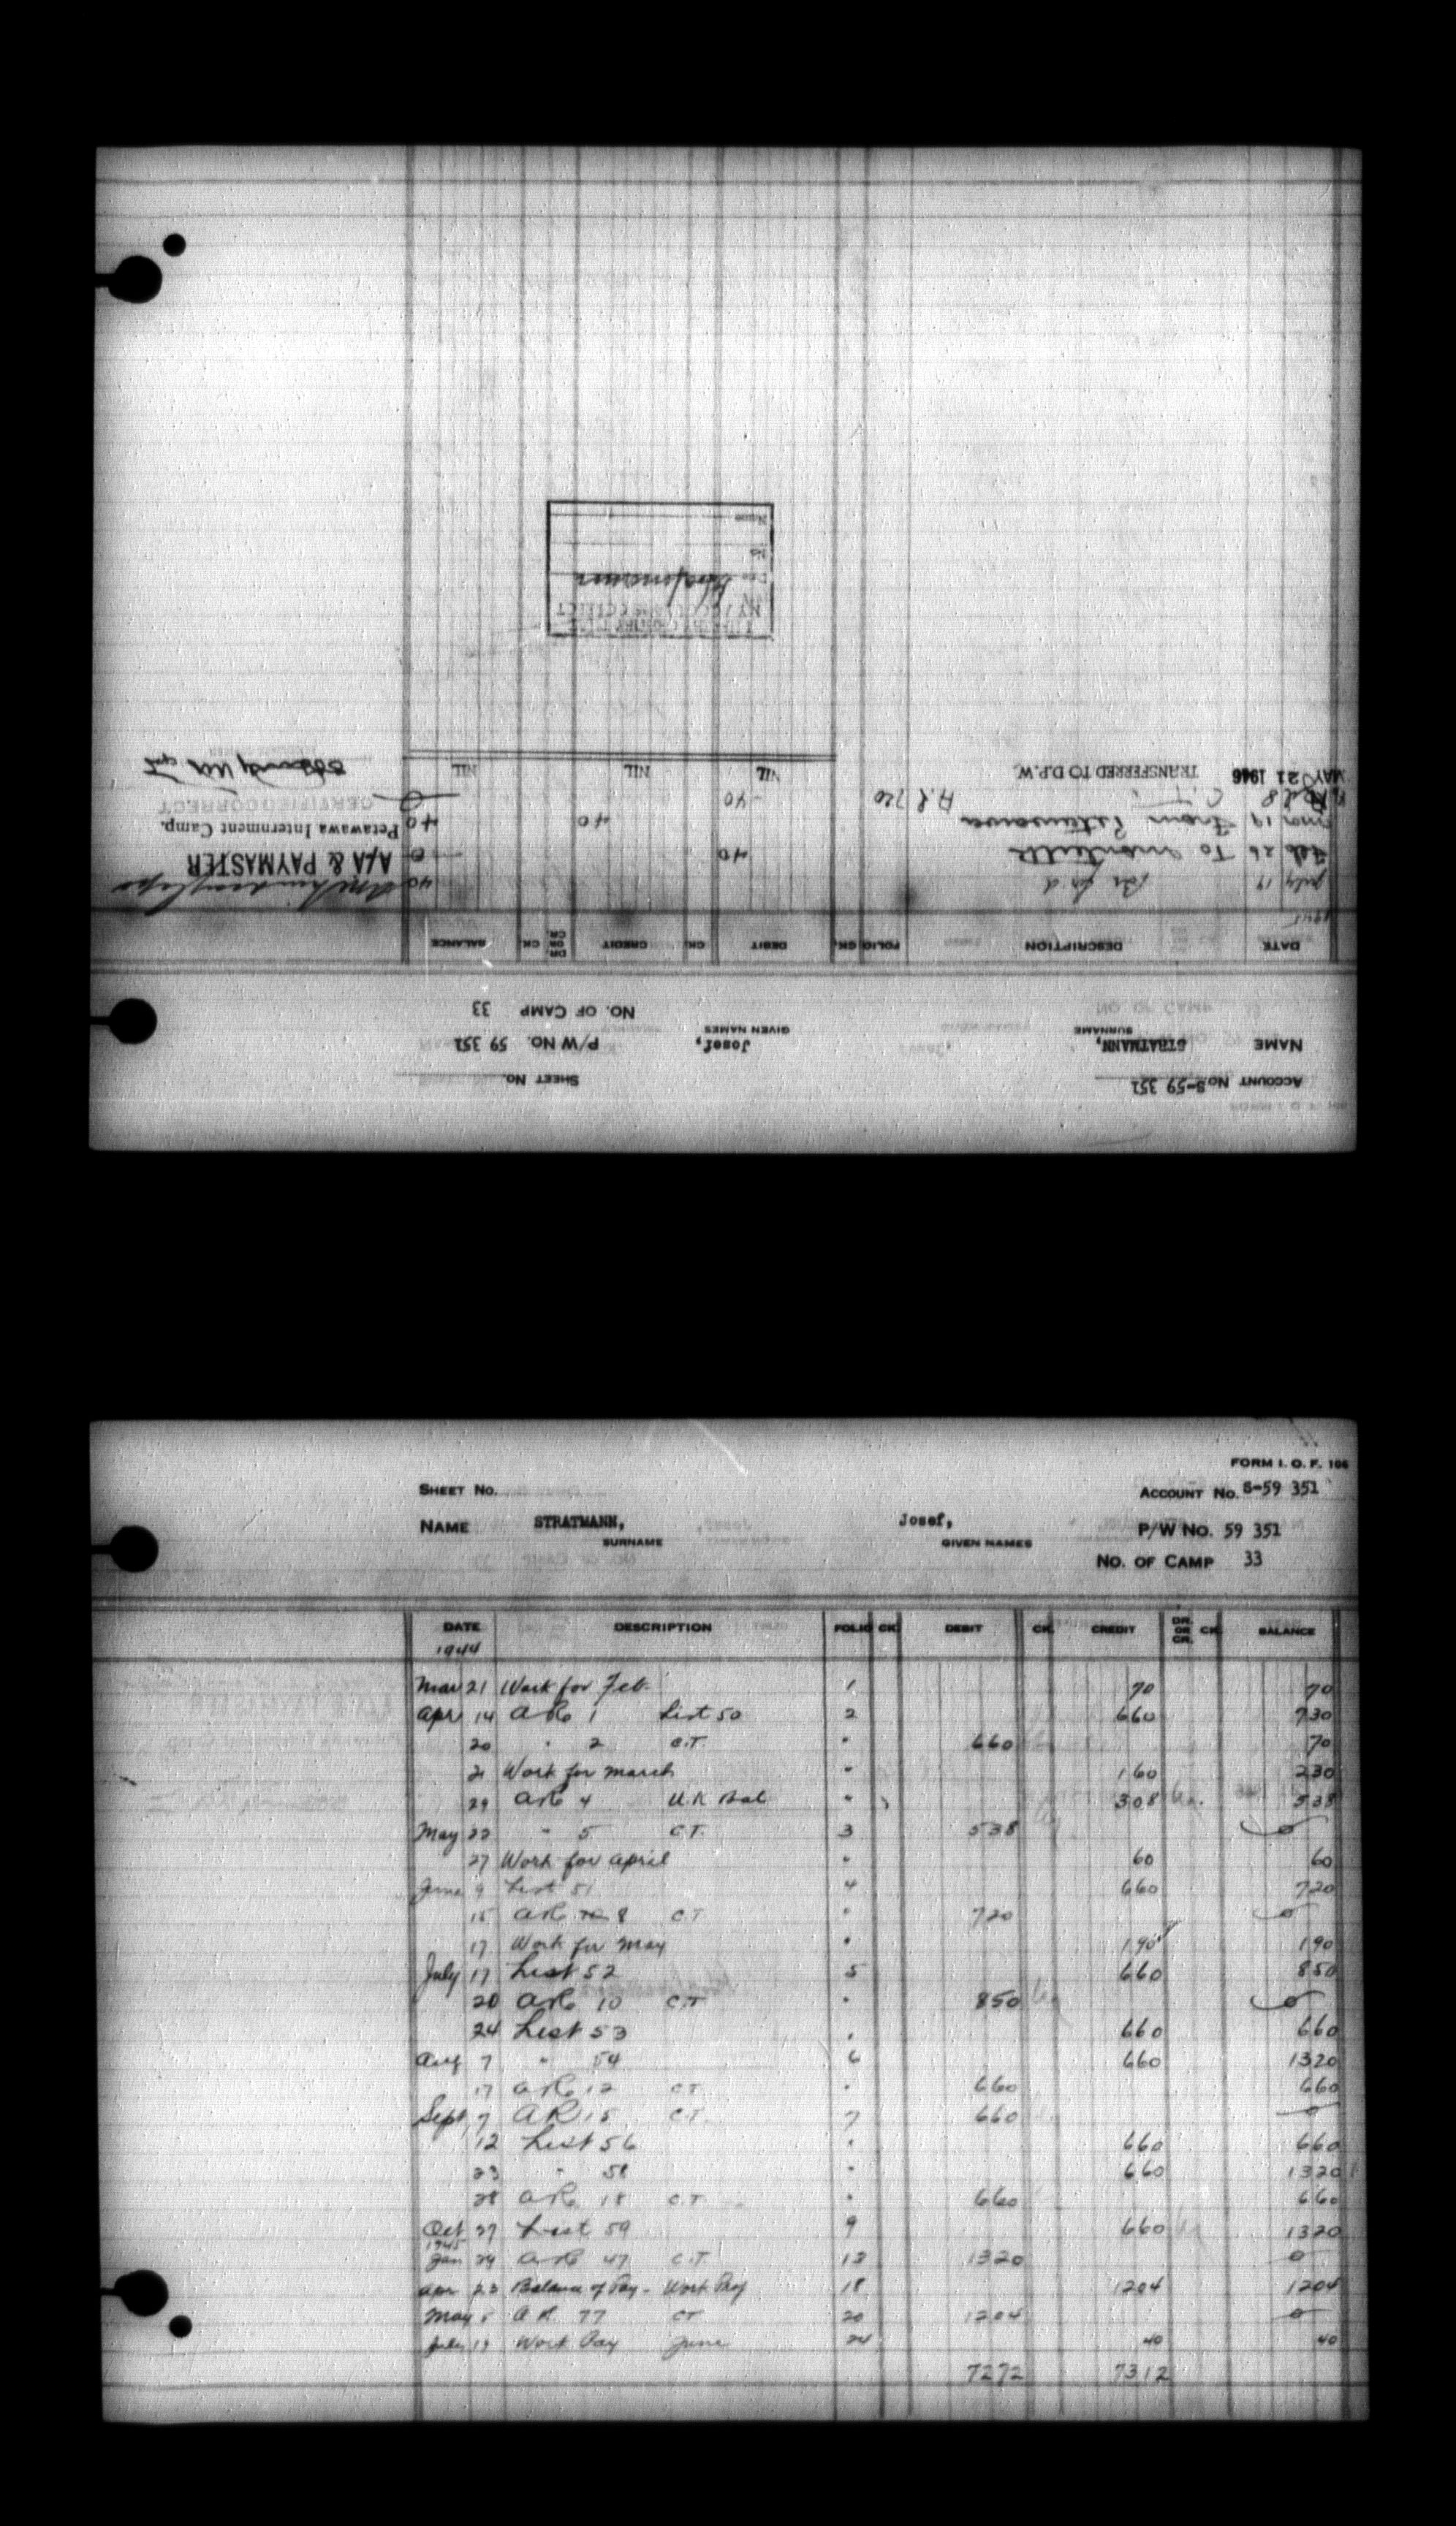 ACCOUNT No. S-59 351 SHEET No.
NAME STRATMANN, Josef, P/W No. 59 351
SURNAME GIVEN NAMES NO. OF CAMP 33
DATE DESCRIPTION FOLIO CK. DEBIT CK. CREDIT DR. OR CR. CK. BALANCE
1945
July 19 Bal fwd 40
A/A & PAYMASTER
Feb 26 To Monteith 40 0
Petawawa Internment Camp.
Mar 19 From Petawawa 40 40
CERTIFIED CORRECT
8 C.T. A.R 720 40 0
MAY 21 1946 TRANSFERRED TO D.P.W. NIL NIL NIL
MY ACCOUNT IS CORRECT
No
Name
FORM I. O. F. 106
SHEET No. ACCOUNT No. S-59 351
NAME STRATMANN, Josef, P/W No. 59 351
SURNAME GIVEN NAMES
NO. OF CAMP 33
DATE DESCRIPTION FOLIO CK. DEBIT CK. CREDIT DR. OR CR. CK. BALANCE
1944
Mar 21 Work for Feb. 1 70 70
Apr 14 AR 1 List 50 2 660 730
20 " 2 C.T. " 660 70
21 Work for March " 160 230
29 AR 4 U.K Bal " 308 538
May 22 " 5 C.T. 3 538 0
27 Work for April " 60 60
June 9 List 51 4 660 720
15 AR 8 C.T " 720 0
17 Work for May " 190 190
July 17 List 52 5 660 850
20 AR 10 C.T " 850 0
24 List 53 " 660 660
Aug 7 " 54 6 660 1320
17 AR 12 C.T " 660 660
Sept 7 AR 15 C.T. 7 660 0
12 List 56 " 660 660
23 " 58 " 660 1320
28 AR 18 C.T. " 660 660
Oct 27 List 59 9 660 1320
1945
Jan 29 AR 47 C.T 13 1320 0
Apr 23 Balance of Pay - Work Pay 18 1204 1204
May 5 A R 77 CT 20 1204 0
July 19 Work Pay June 24 40 40
7272 7312